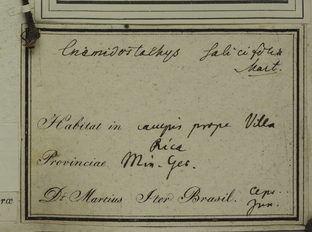 Cnemidostachys salicifolia
Mart.
Habitat in campis prope Villa
Rica
Provinciae Min. Ger.
Dr Martius Iter Brasil.
Jun.